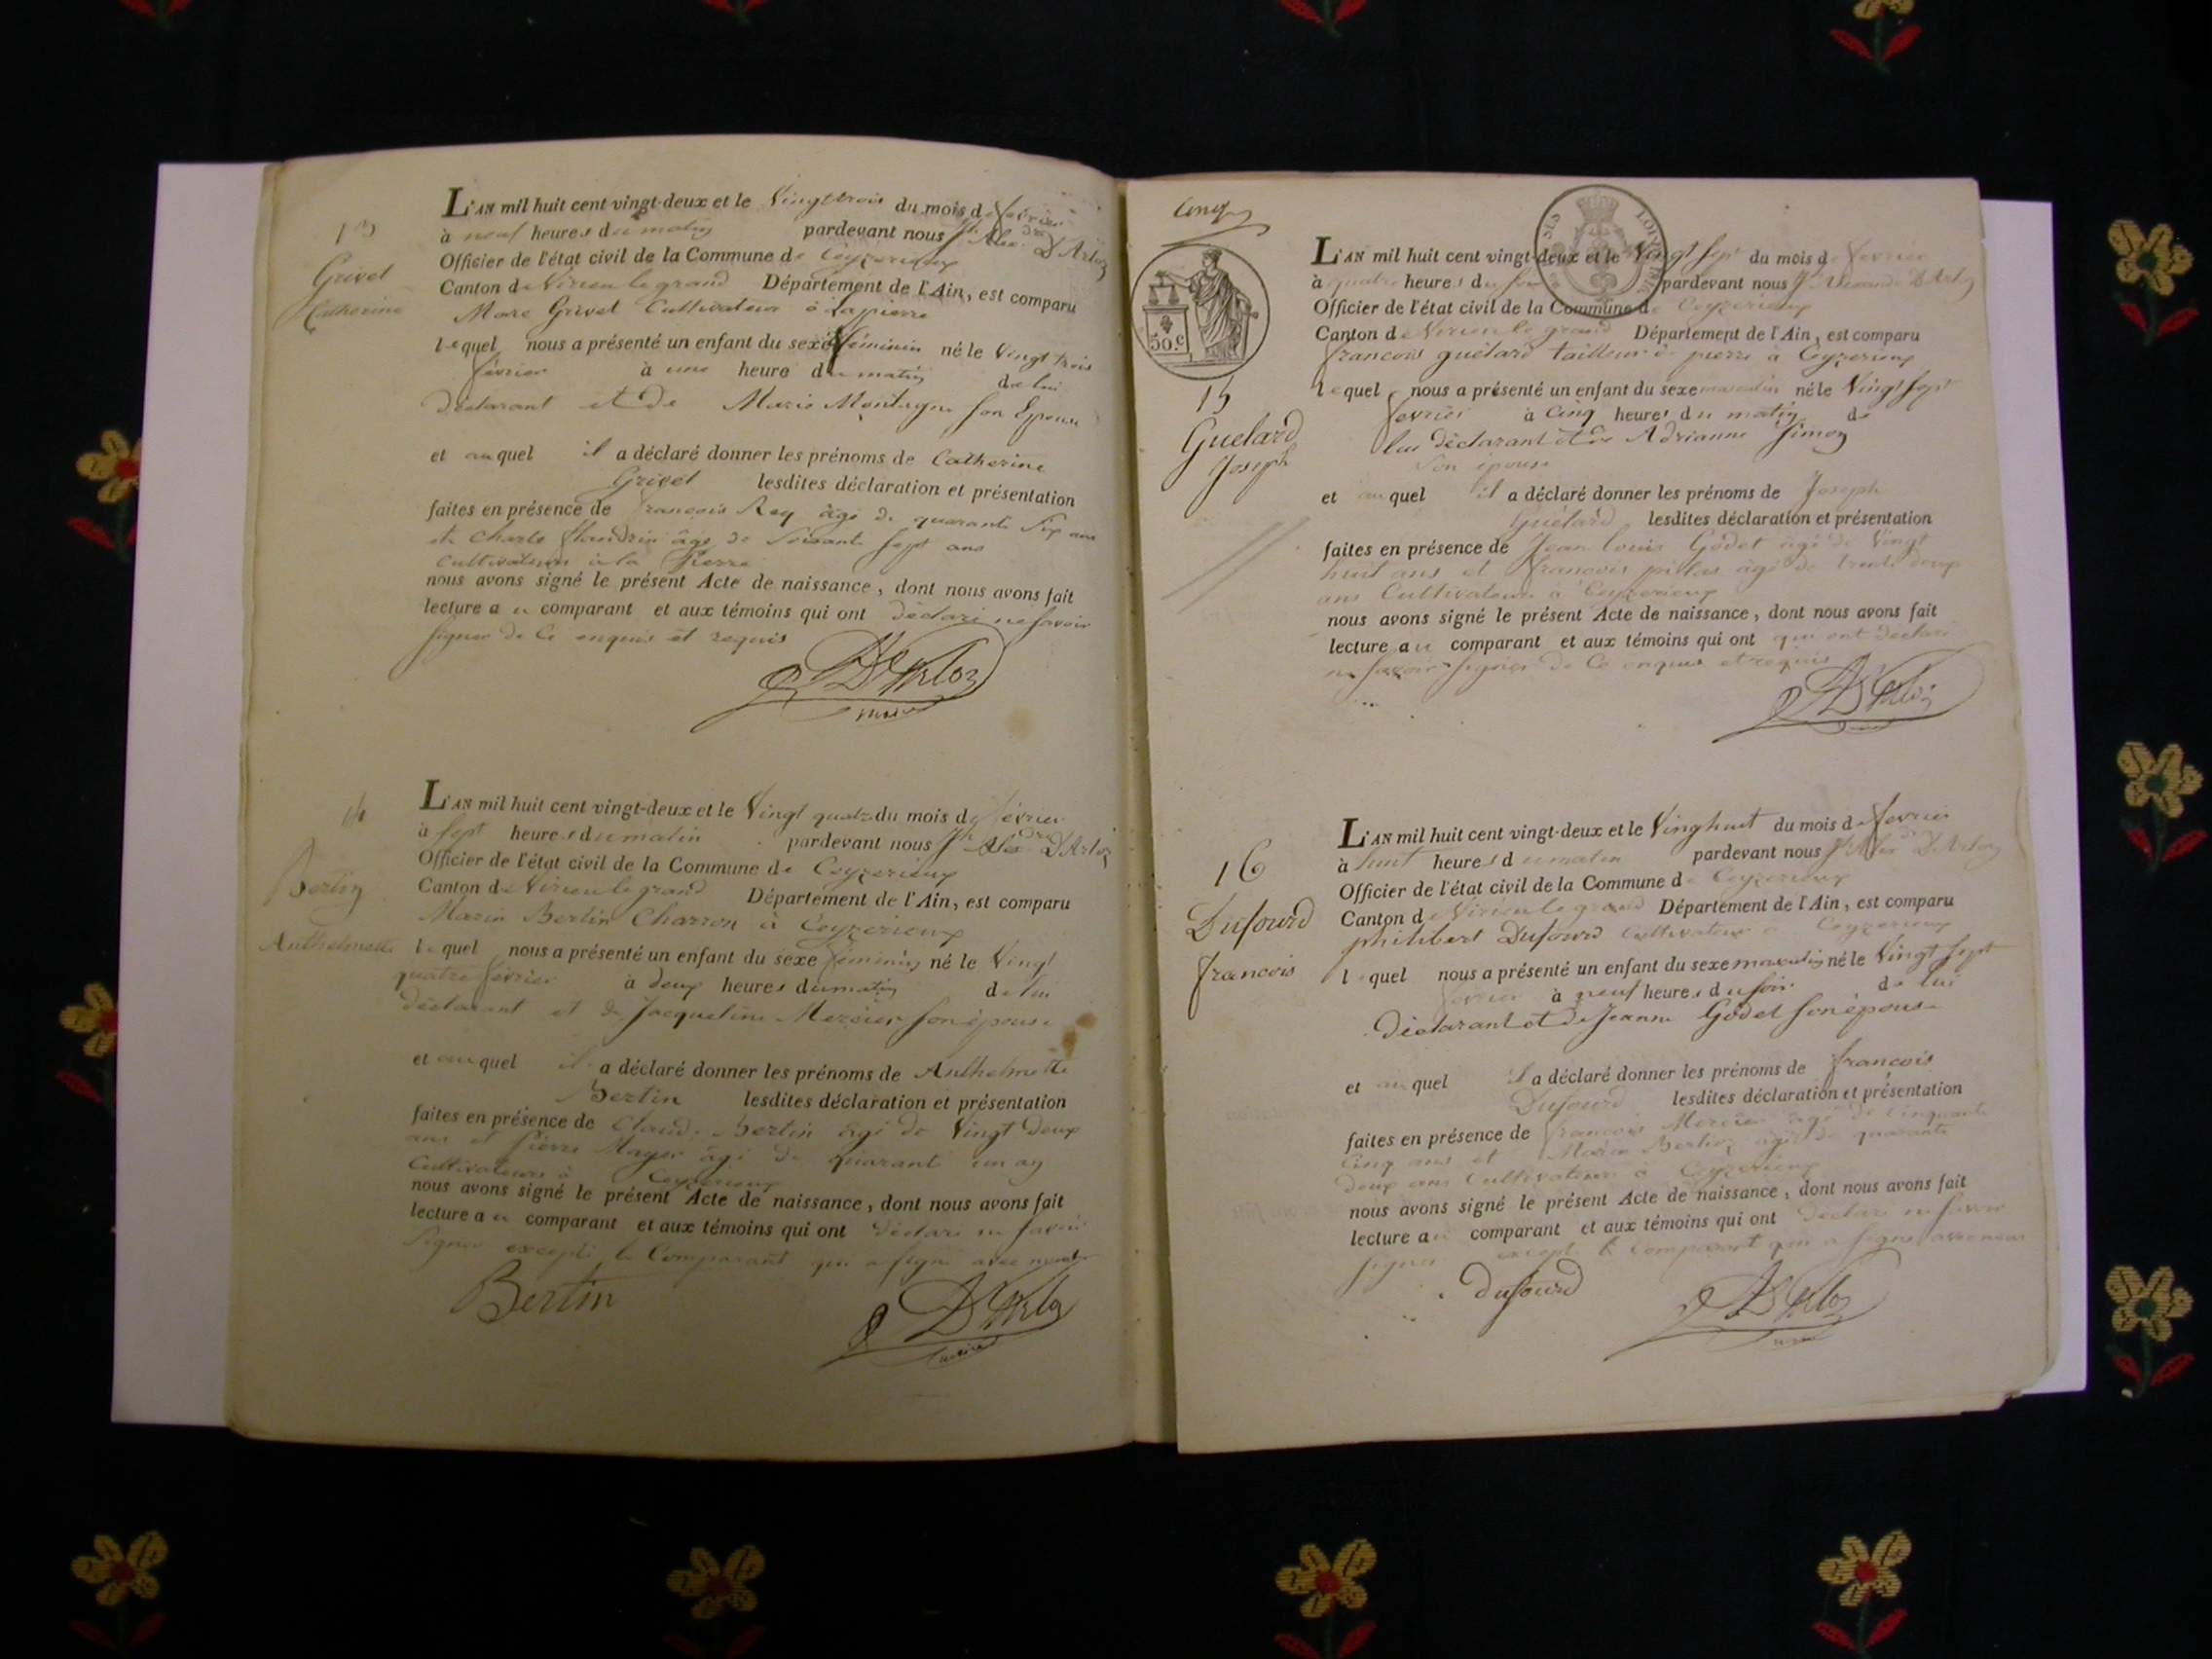 13
Grivel
Catherine
L'AN mil huit cent vingt-deux et le Vingt trois du mois de fevrier
à neuf heures du matin pardevant nous Jh. Alex.dre D'Arloz
Officier de l'état civil de la Commune de Ceyzerieux
Canton de Virieu le grand Département de l'Ain, est comparu
Marc Grivel Cultivateur à Lapierre
lequel nous a présenté un enfant du sexe féminin né le Vingt trois
février à une heure du matin de lui
déclarant et de Marie Montagne son Epouse
et auquel il a déclaré donner les prénoms de Catherine
Grivel lesdites déclaration et présentation
faites en présence de francois Rey âgé de quarante Six ans
et Charle flandrin âgé de Soixante sept ans
Cultivateurs à la Pierre
nous avons signé le présent Acte de naissance, dont nous avons fait
lecture au comparant et aux témoins qui ont déclaré ne savoir
signer de Ce enquis et requis
D'Arloz
maire
14
Bertin
Anthelmette
L'AN mil huit cent vingt-deux et le Vingt quatre du mois de février
à sept heures du matin pardevant nous Jh Alex.dre D'Arloz
Officier de l'état civil de la Commune de Ceyzerieux
Canton de Virieu le grand Département de l'Ain, est comparu
Marin Bertin Charron à Ceyzerieux
lequel nous a présenté un enfant du sexe féminin né le Vingt
quatre février à deux heures du matin de lui
déclarant et de Jacqueline Mercier son épouse
et auquel il a déclaré donner les prénoms de Anthelmette
Bertin lesdites déclaration et présentation
faites en présence de Claude Bertin âgé de Vingt deux
ans et Pierre Mayer âgé de quarante un an
Cultivateurs à Ceyzerieux
nous avons signé le présent Acte de naissance, dont nous avons fait
lecture au comparant et aux témoins qui ont déclaré ne savoir
signer excepté le Comparant qui a signé avec nous
Bertin
D'Arloz
maire
Cinq
50.c
15
Guelard
Joseph
L'AN mil huit cent vingt-deux et le Vingt sept du mois de fevrier
à quatre heures du soir pardevant nous Jh Alexandre D'Arloz
Officier de l'état civil de la Commune de Ceyzerieux
Canton de Virieu le grand Département de l'Ain, est comparu
francois guélard tailleur de pierre à Ceyzerieux
lequel nous a présenté un enfant du sexe masculin né le Vingt sept
fevrier à Cinq heures du matin de
lui déclarant et de Adrianne Simon
son épouse
et auquel il a déclaré donner les prénoms de Joseph
Guélard lesdites déclaration et présentation
faites en présence de Jean louis Godet âgé de Vingt
huit ans et francois âgé de trente deux
ans Cultivateurs à Ceyzerieux
nous avons signé le présent Acte de naissance, dont nous avons fait
lecture au comparant et aux témoins qui ont qui ont déclaré
ne savoir signer de Ce enquis et requis
D'Arloz
16
Dufourd
francois
L'AN mil huit cent vingt-deux et le Vinghuit du mois de fevrier
à huit heures du matin pardevant nous Jh Alex.dre D'Arloz
Officier de l'état civil de la Commune de Ceyzerieux
Canton de Virieu le grand Département de l'Ain, est comparu
philibert Dufourd Cultivateur à Ceyzerieux
lequel nous a présenté un enfant du sexe masculin né le Vingt sept
fevrier à neuf heures du soir de lui
déclarant et de Jeanne Godet son épouse
et auquel il a déclaré donner les prénoms de francois
Dufourd lesdites déclaration et présentation
faites en présence de francois Mercier âgé de Cinquante
Cinq ans et Marin Bertin âgé de quarante
deux ans Cultivateurs à Ceyzerieux
nous avons signé le présent Acte de naissance, dont nous avons fait
lecture au comparant et aux témoins qui ont déclaré ne savoir
signer excepté le Comparant qui a signé avec nous
dufourd
D'Arloz